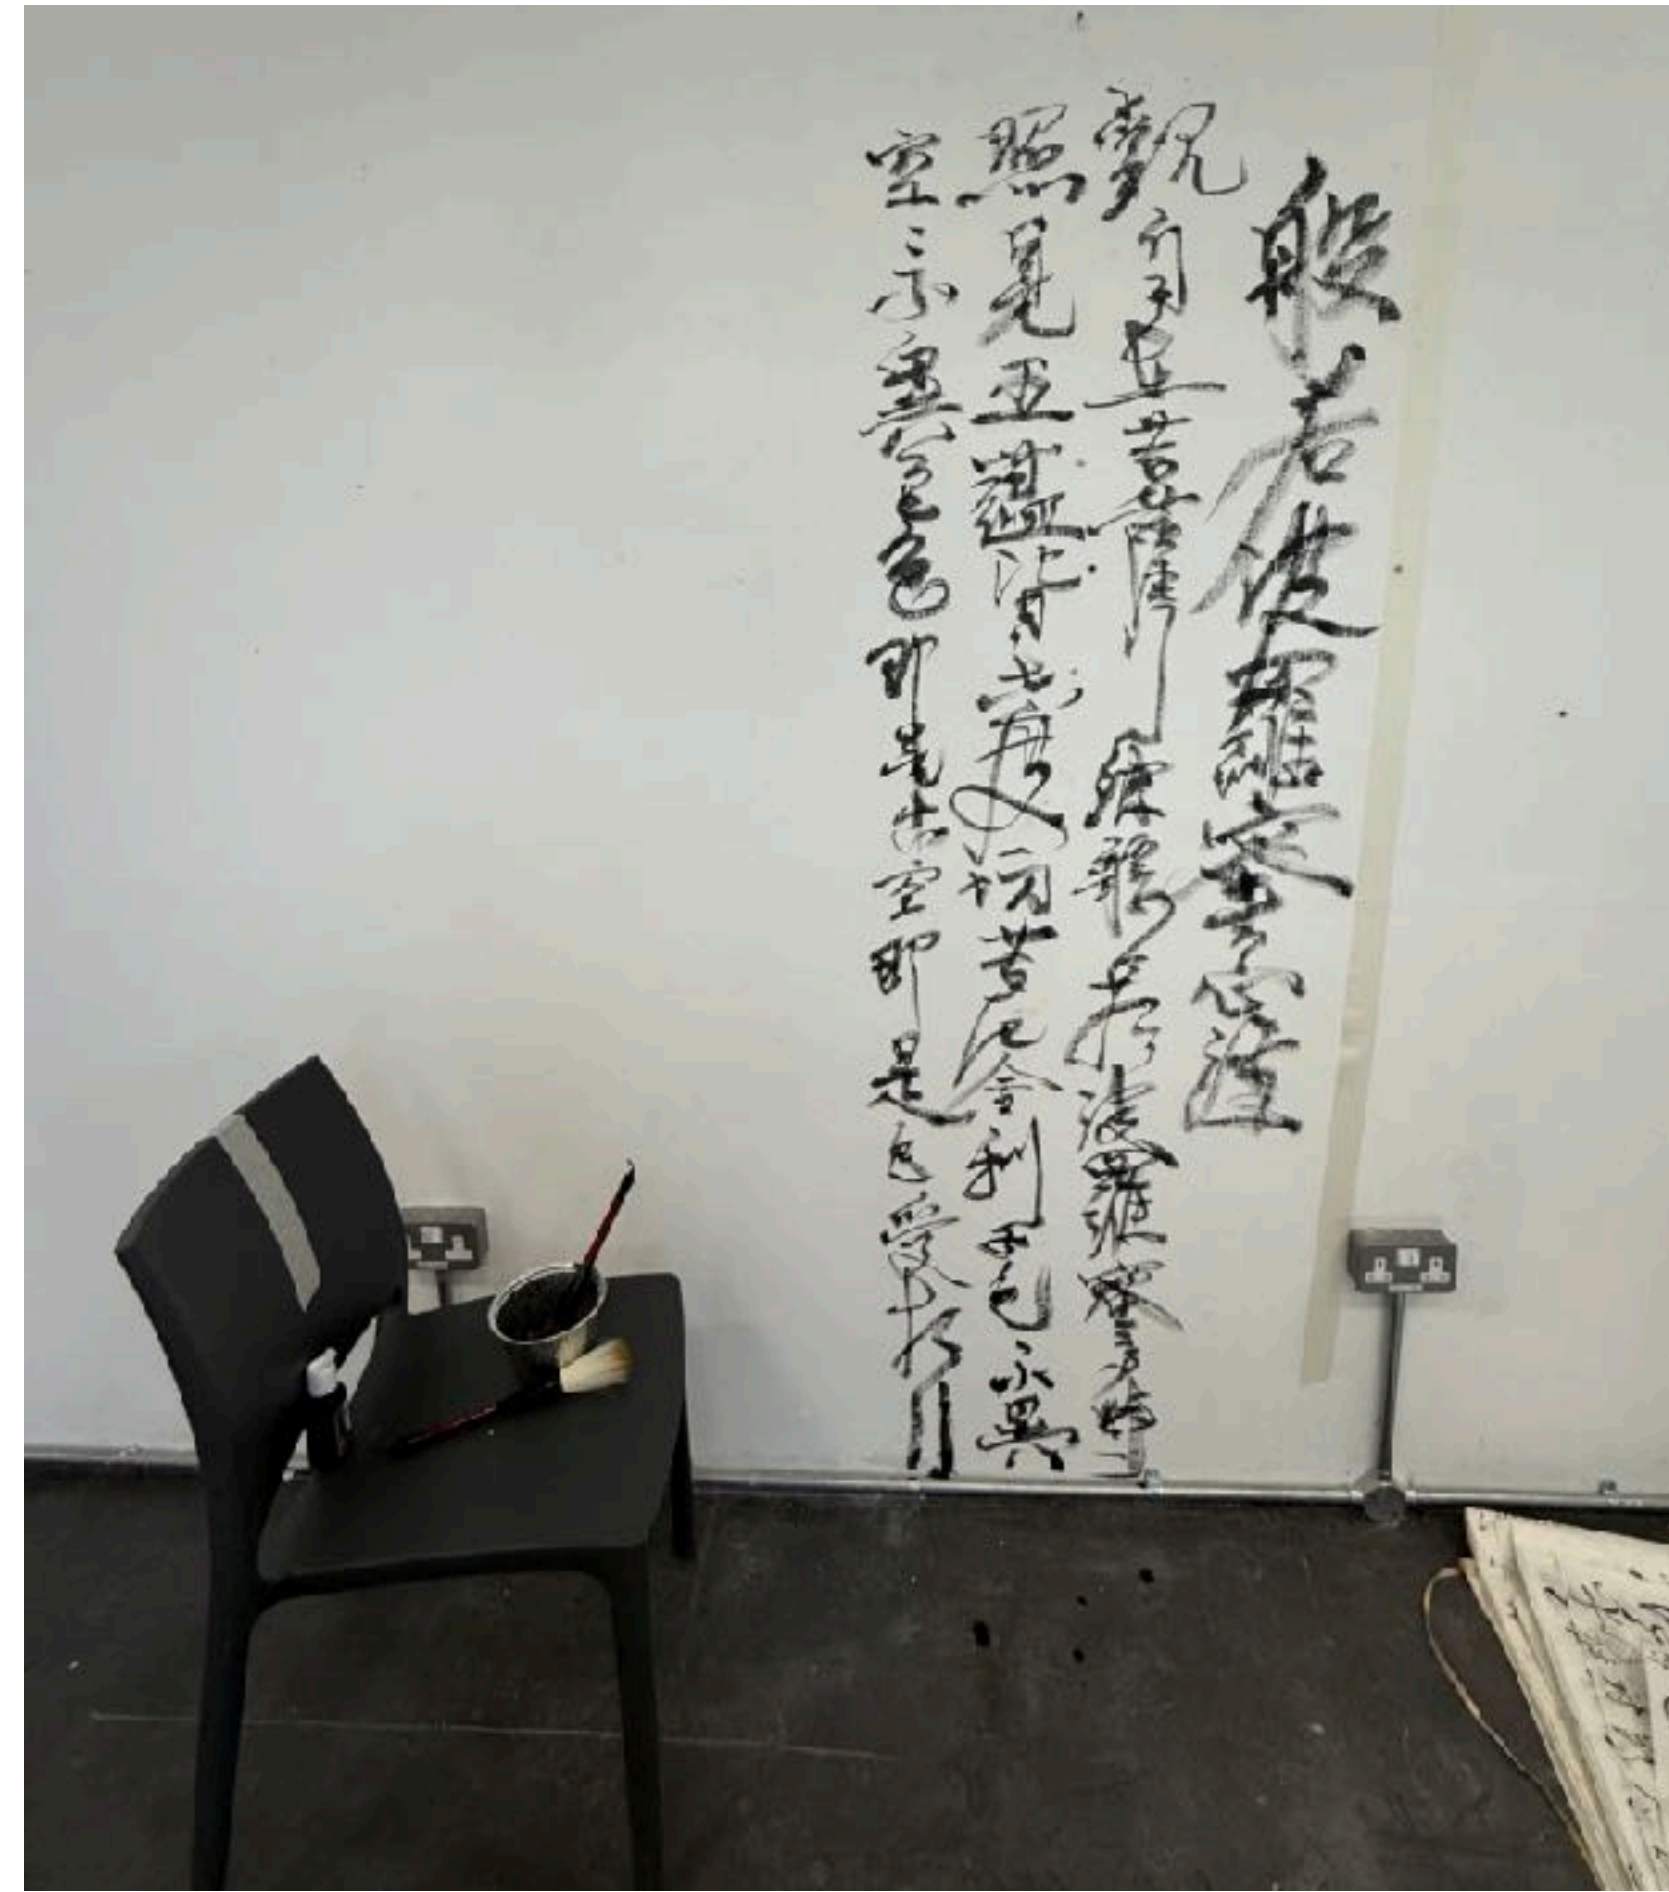 般若波羅蜜多心經
觀自在菩薩行深般若波羅蜜多時
照見五蘊皆空度一切苦厄舍利子色不異
空〻不異色色即是空空即是色受想行